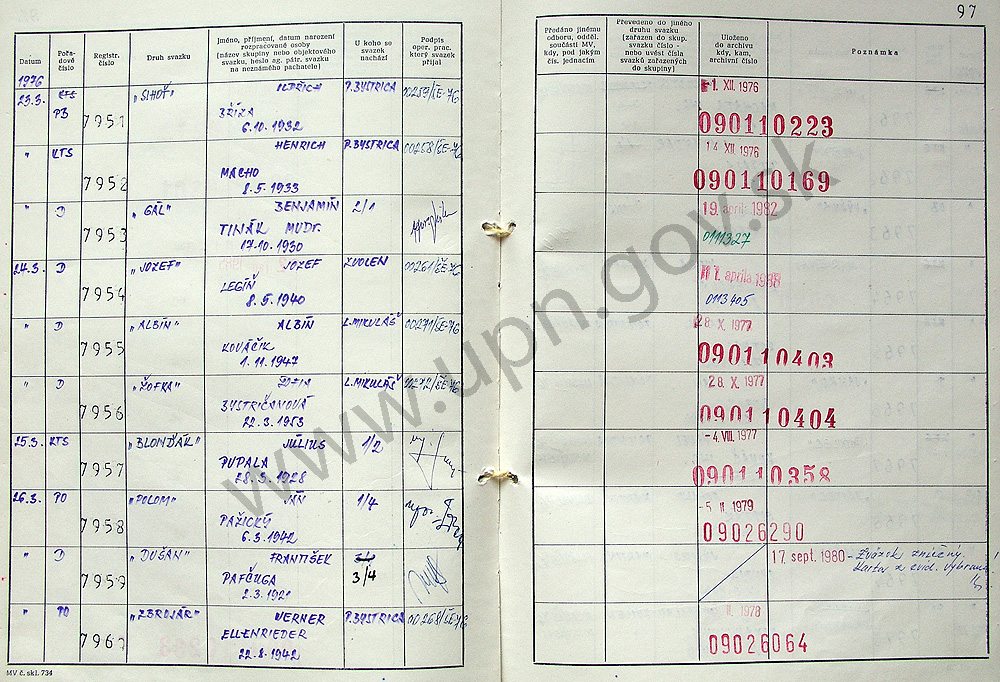 97
Datum
Pořadové číslo
Registr. číslo
Druh svazku
Jméno, příjmení, datum narození
rozpracované osoby
(název skupiny nebo objektového
svazku, heslo ag. pátr. svazku
na neznámého pachatele)
U koho se
svazek
nachází
Podpis
oper. prac.
který svazek
přijal
Předáno jinému
odboru, odděl.
součásti MV,
kdy, pod jakým
čís. jednacím
Převedeno do jiného
druhu svazku
(zařazen do skup.
svazku číslo -
nebo uvést čísla
svazků zařazených
do skupiny)
Uloženo
do archivu
kdy, kam,
archivní číslo
Poznámka
1976
23.3. KTS "SIHOŤ" OLDŘICH P.BYSTRICA 00259/ŠE-76 1. XII 1976
PB 7951 BŘÍZA 090110223
6.10.1932
" KTS HENRICH P.BYSTRICA 00258/ŠE-76 14 XII 1976
7952 MACHO 090110169
8.5.1933
" D "GÁL" BENJAMÍN 2/1 19 apríla 1982
7953 TINÁK MUDr. 0111327
17.10.1930
24.3. D "JOZEF" JOZEF ZVOLEN 00261/ŠE-76 apríla 1988
7954 LEGÍŇ 0113405
8.5.1940
" D "ALBÍN" ALBÍN L.MIKULÁŠ 00271/ŠE-76 28 X. 1977
7955 KOVÁČIK 090110403
1.11.1947
" D "ŽOFKA" L.MIKULÁŠ 00272/ŠE-76 28 X. 1977
7956 BYSTRIČANOVÁ 090110404
22.3.1953
25.3. KTS "BLONĎÁK" JÚLIUS 1/2 -4. VIII. 1977
7957 PUPALA 090110358
28.3.1928
26.3. PO "POLOM" JÁN 1/4 -5 II. 1979
7958 PAŽICKÝ 09026290
6.3.1942
" D "DUŠAN" FRANTIŠEK 17. sept. 1980 - Zväzok zničený.
7959 PAFČUGA 3/4 Karta z evid. vybraná
2.3.1921
" PO "ZBROJÁR" WERNER P.BYSTRICA 00268/ŠE-76 II. 1978
7960 ELLENRIEDER 09026064
22.8.1942
MV č. skl. 734
www.upn.gov.sk